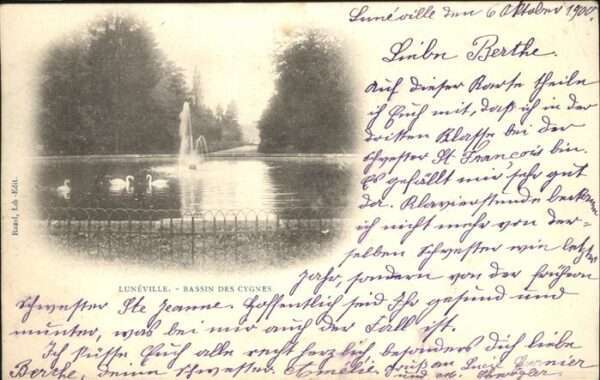 Lunéville den 6 Oktober 1900.
Liebe Berthe.
Auf dieser Karte theile
ich Euch mit, daß ich in der
dritten Klasse bei der
Schwester St. François bin.
Es gefällt mir sehr gut
da. Klavierstunde bekomme
ich nicht mehr von der-
selben Schwester wie letztes
Jahr, sondern von der frühern
Schwester Ste Jeanne. Hoffentlich seid Ihr gesund und
munter, was bei mir auch der Fall ist.
Ich küsse Euch alle recht herzlich besonders dich liebe
Berthe, deine Schwester. Amélie. Gruß an
und
LUNÉVILLE. - BASSIN DES CYGNES
Bastel, Lib-Edit.